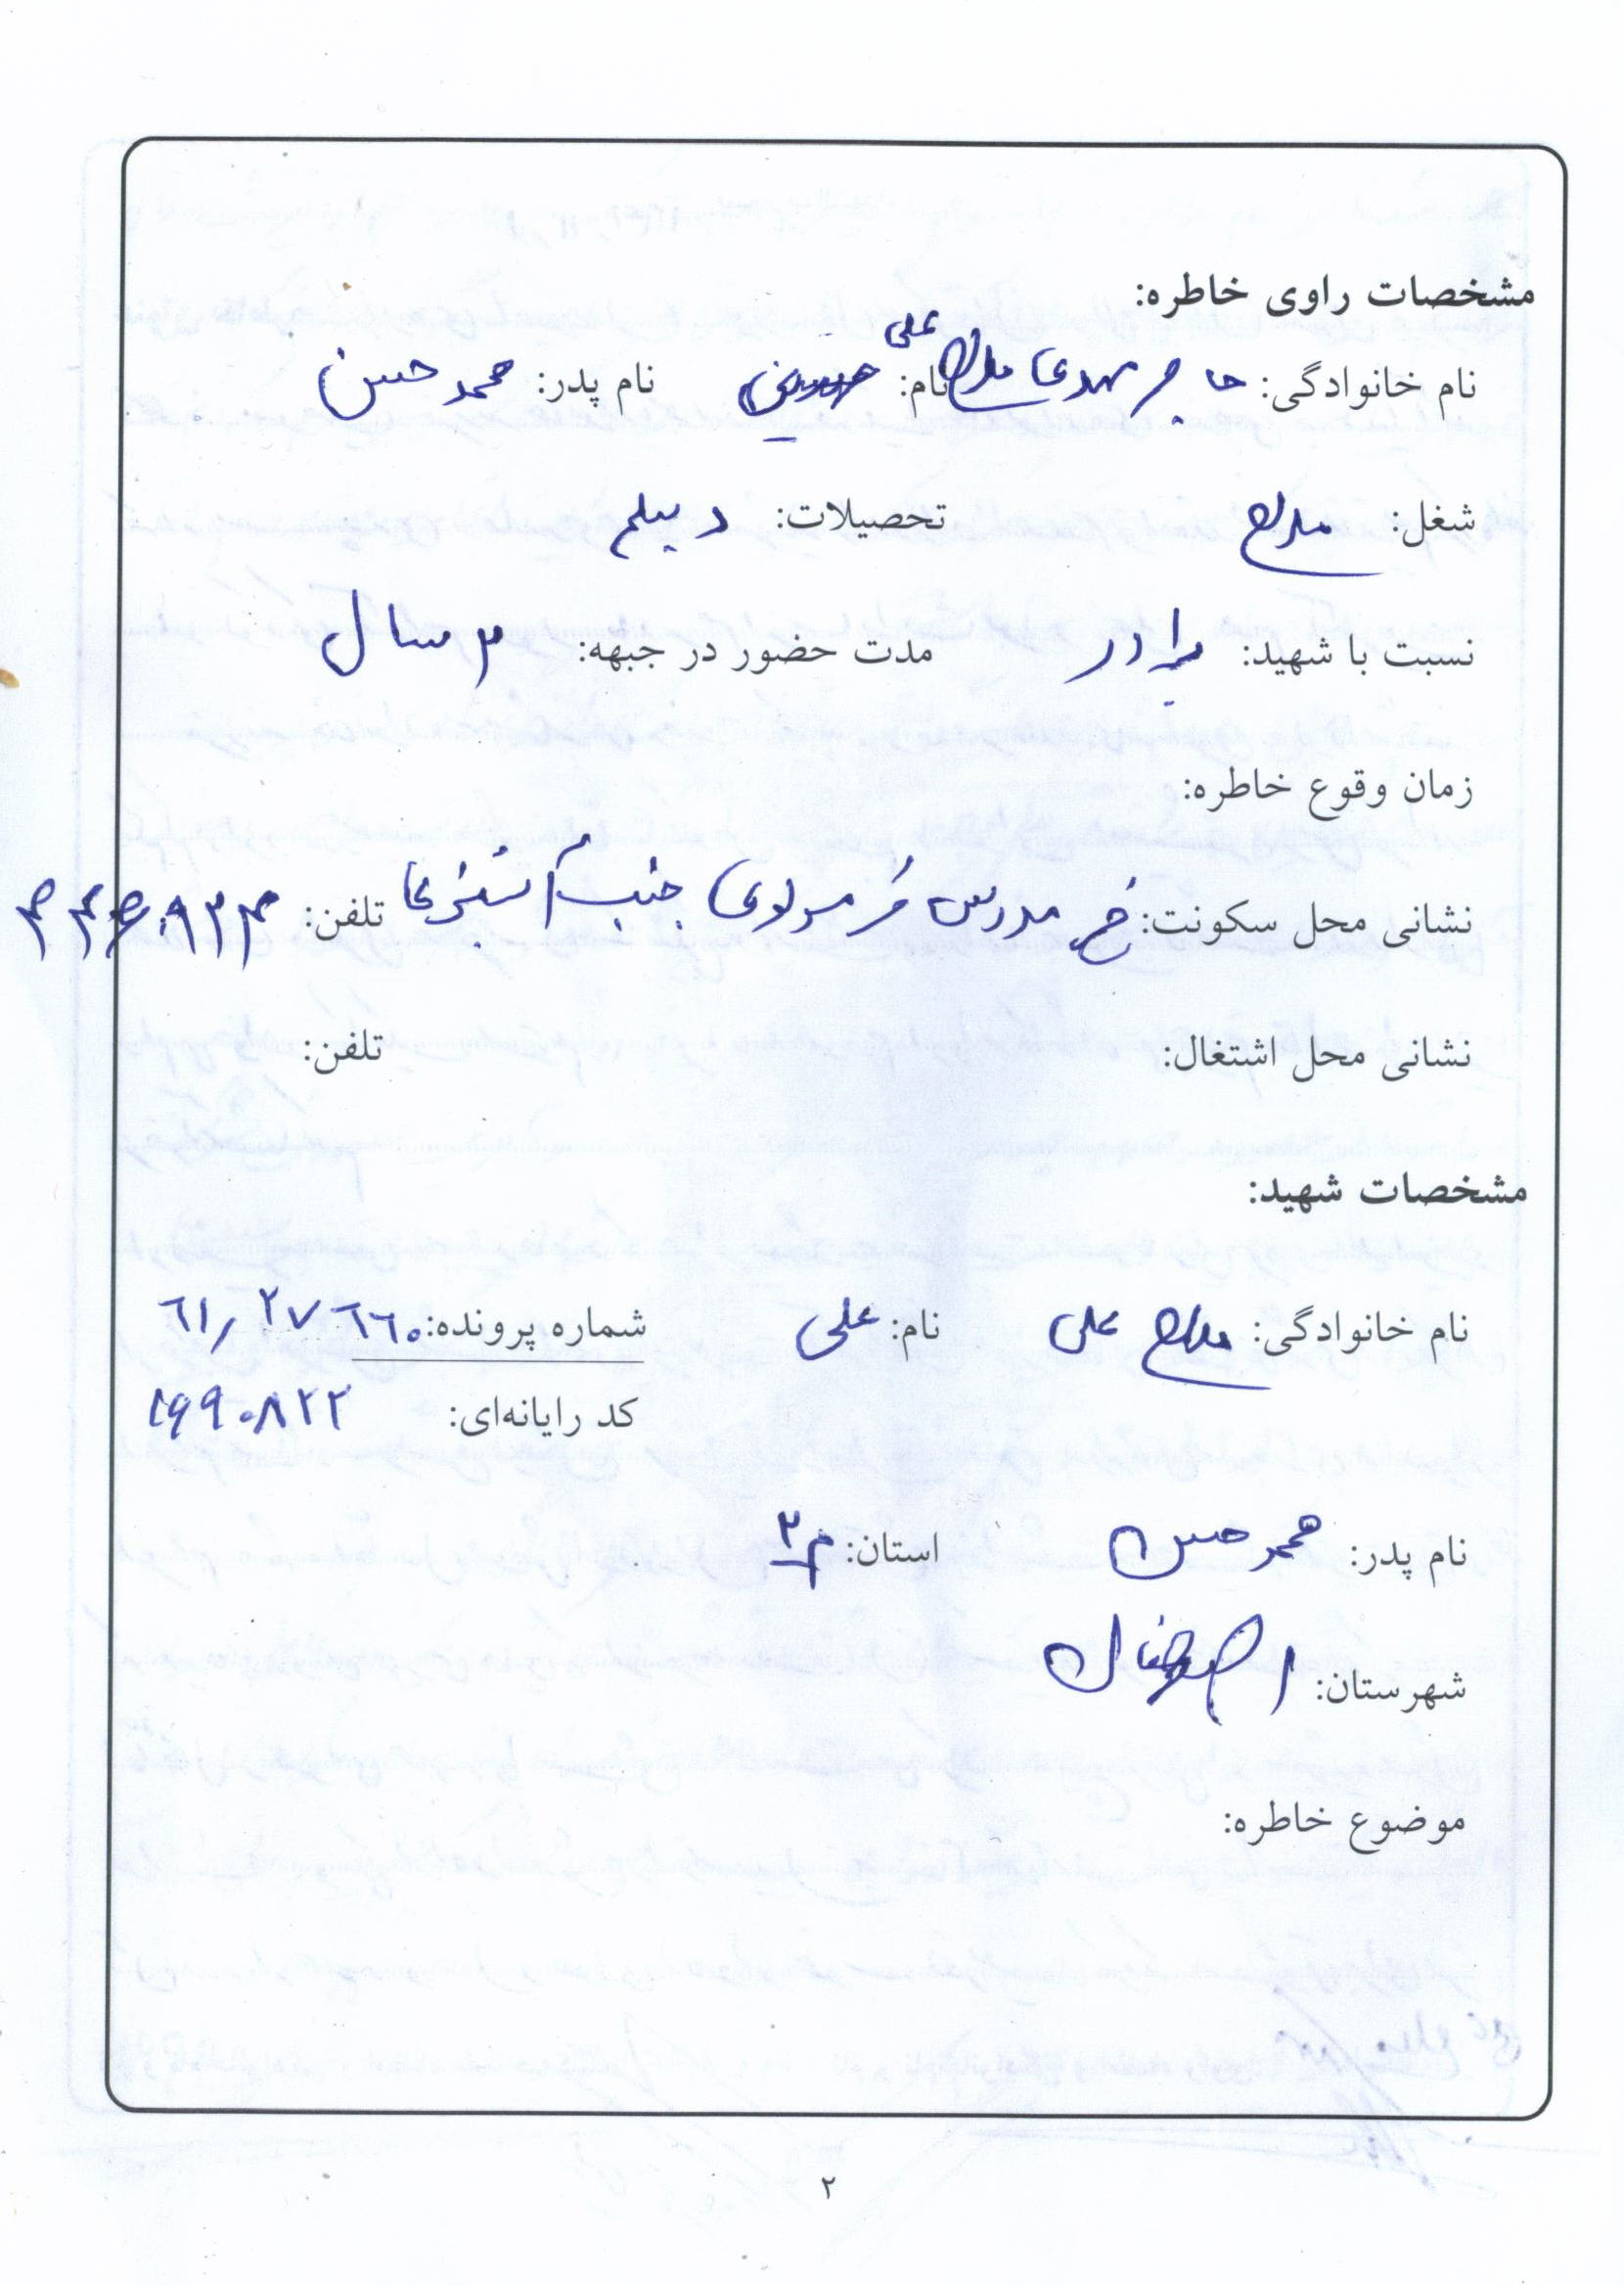 مشخصات راوی خاطره:
علی
نام خانوادگی: حاج مهدی مداح نام: نام پدر: محمد حسن
شغل: مداح تحصیلات: دیپلم
نسبت با شهید: برادر مدت حضور در جبهه: ۳ سال
زمان وقوع خاطره:
نشانی محل سکونت: خ مدرس خ مولوی جنب تلفن:
نشانی محل اشتغال: تلفن:
مشخصات شهید:
نام خانوادگی: مداح علی نام: علی شماره پرونده: ۶۱/۲۷۶۶۰
کد رایانه‌ای: ۱۶۹۰۸۲۲
نام پدر: محمد حسن استان:
شهرستان: اصفهان
موضوع خاطره:
۲